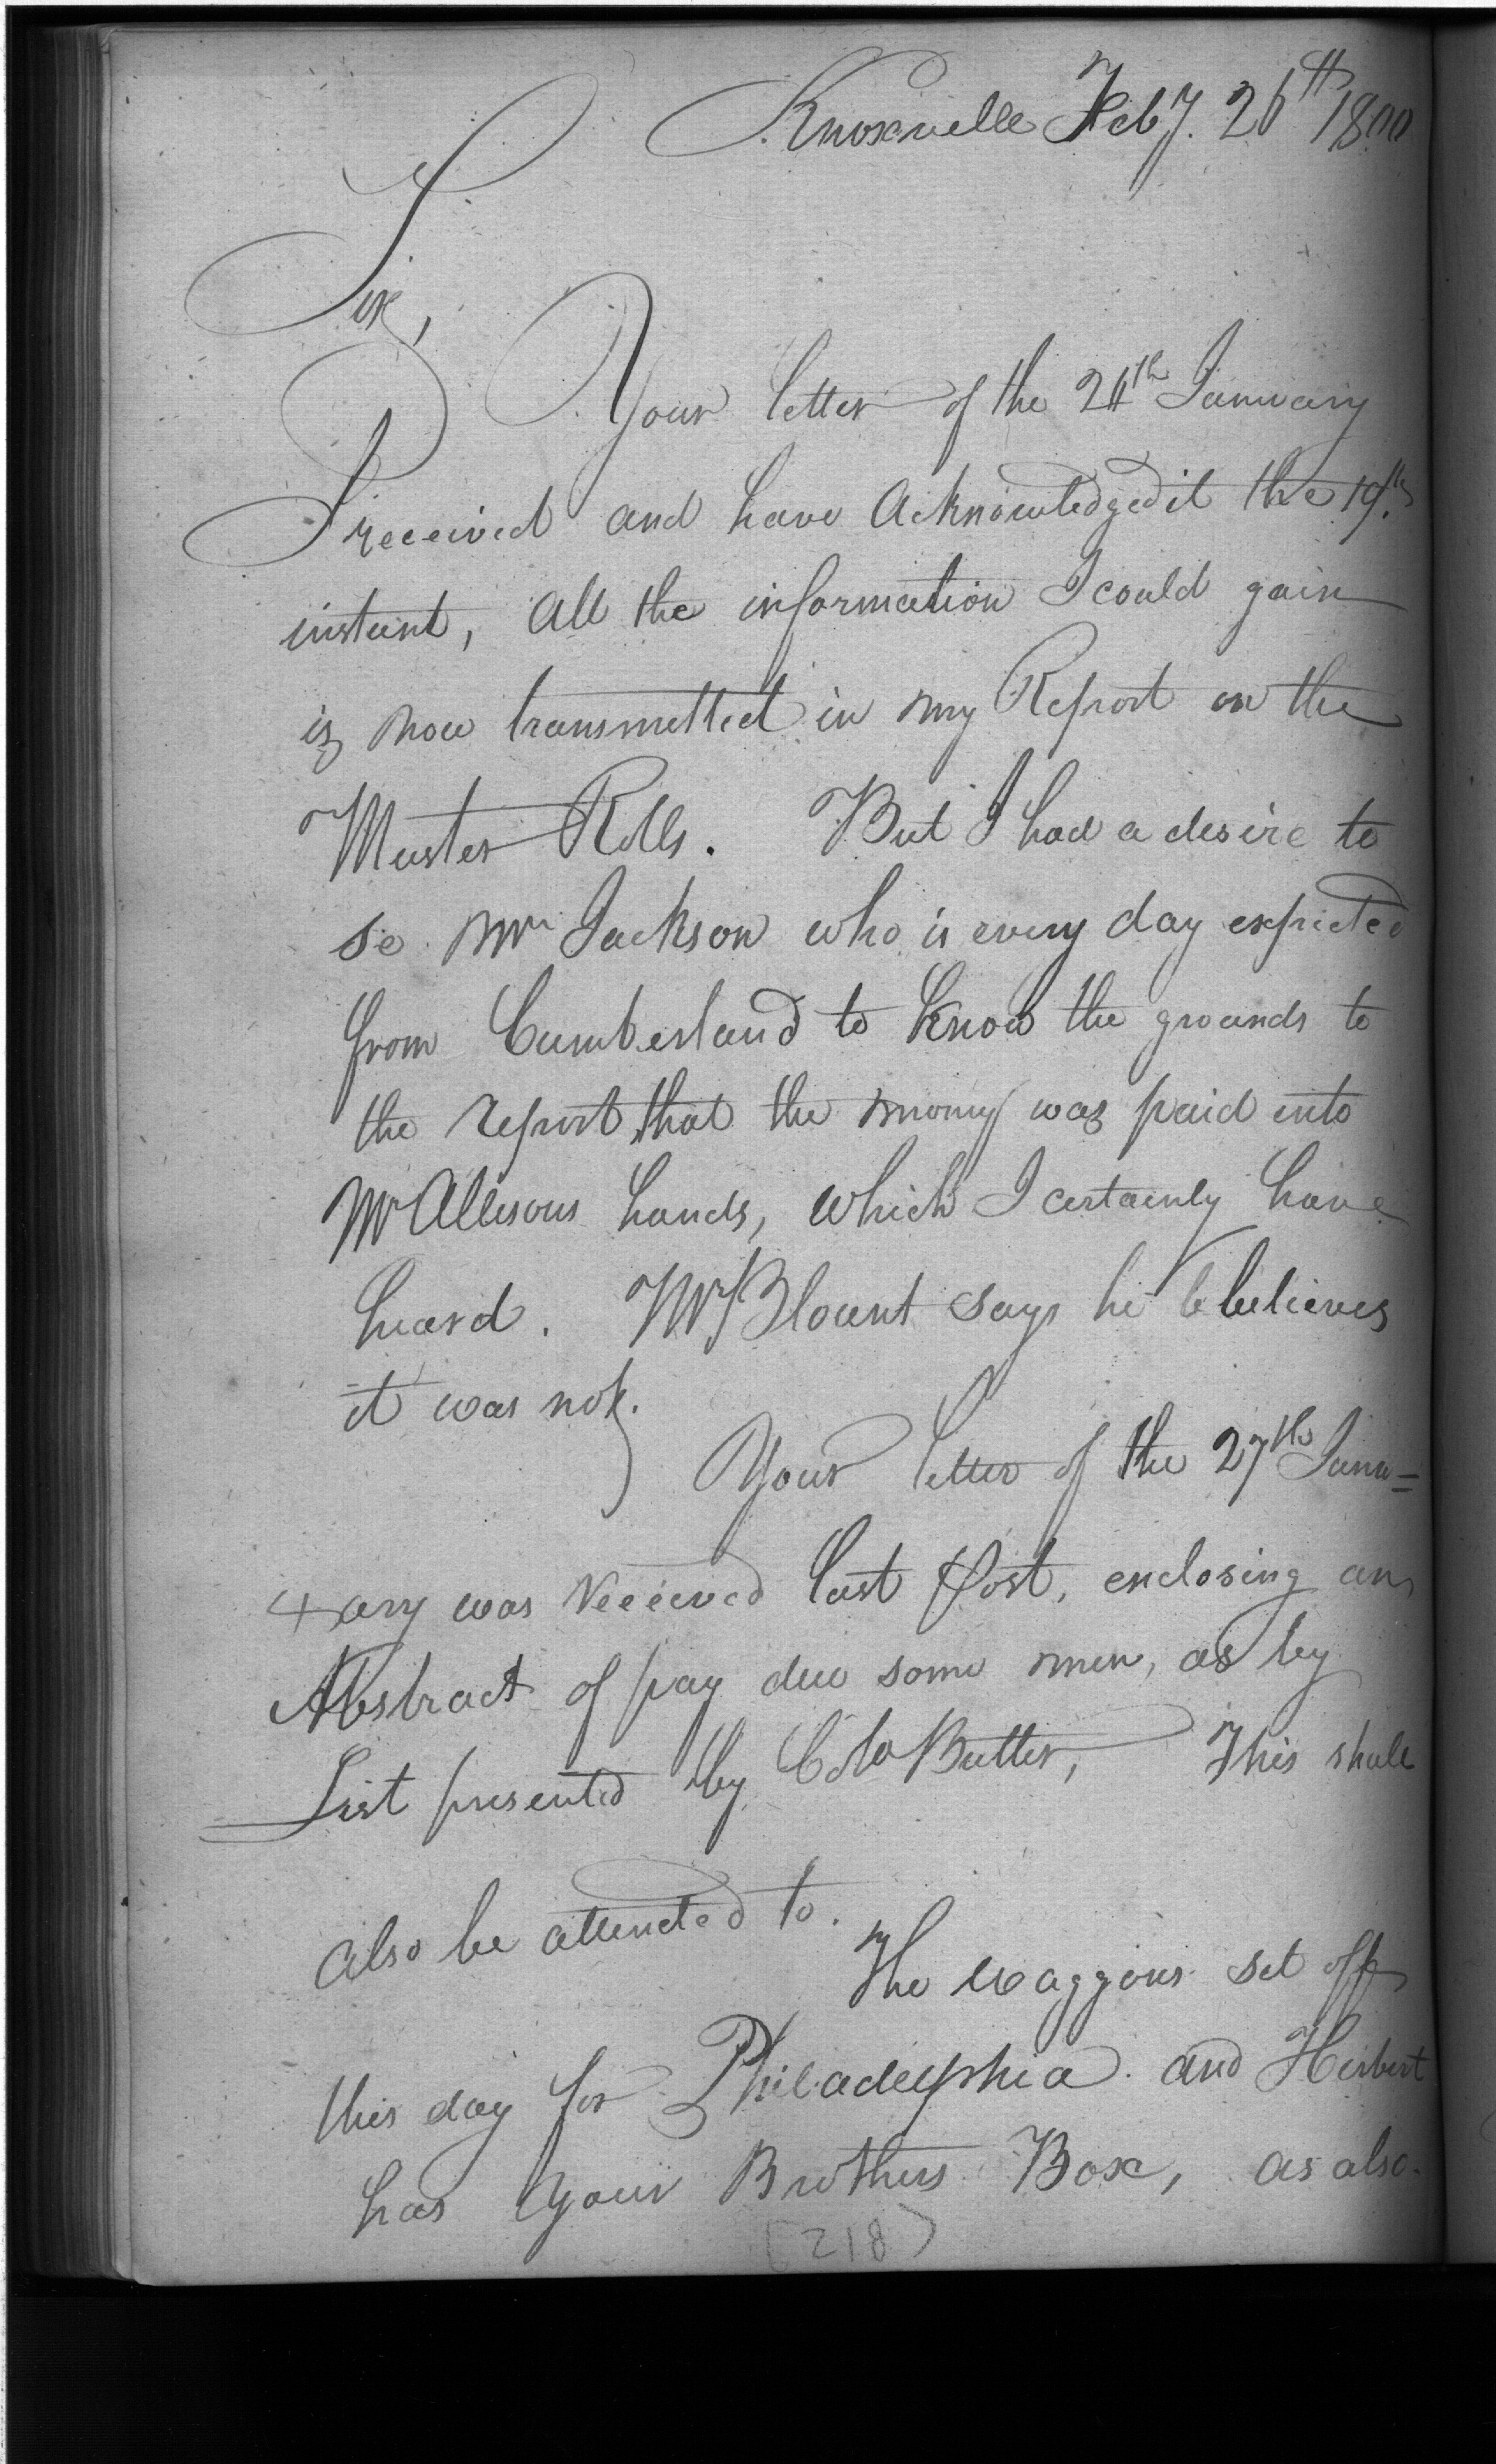 Knoxville Feby. 26th 1800
Sir,
Your letter of the 24th January
I received and have Acknowledged it the 19th
instant, All the information I could gain
is now transmitted in my Report on the
Muster Rolls. But I had a desire to
se Mr Jackson who is every day expected
from Cumberland to know the grounds to
the report that the money was paid into
Mr Allisons hands, which I certainly have
heard. Mr Blount says he b believes
it was not.
Your letter of the 27th Janu=
+ary was received last Post, enclosing an
Abstract of pay due some men, as by
List presented by Colo Butler, This shall
also be attended to.
The waggons set off
this day for Philadelphia. and Herbert
has your Brothers Box, as also.
(218)